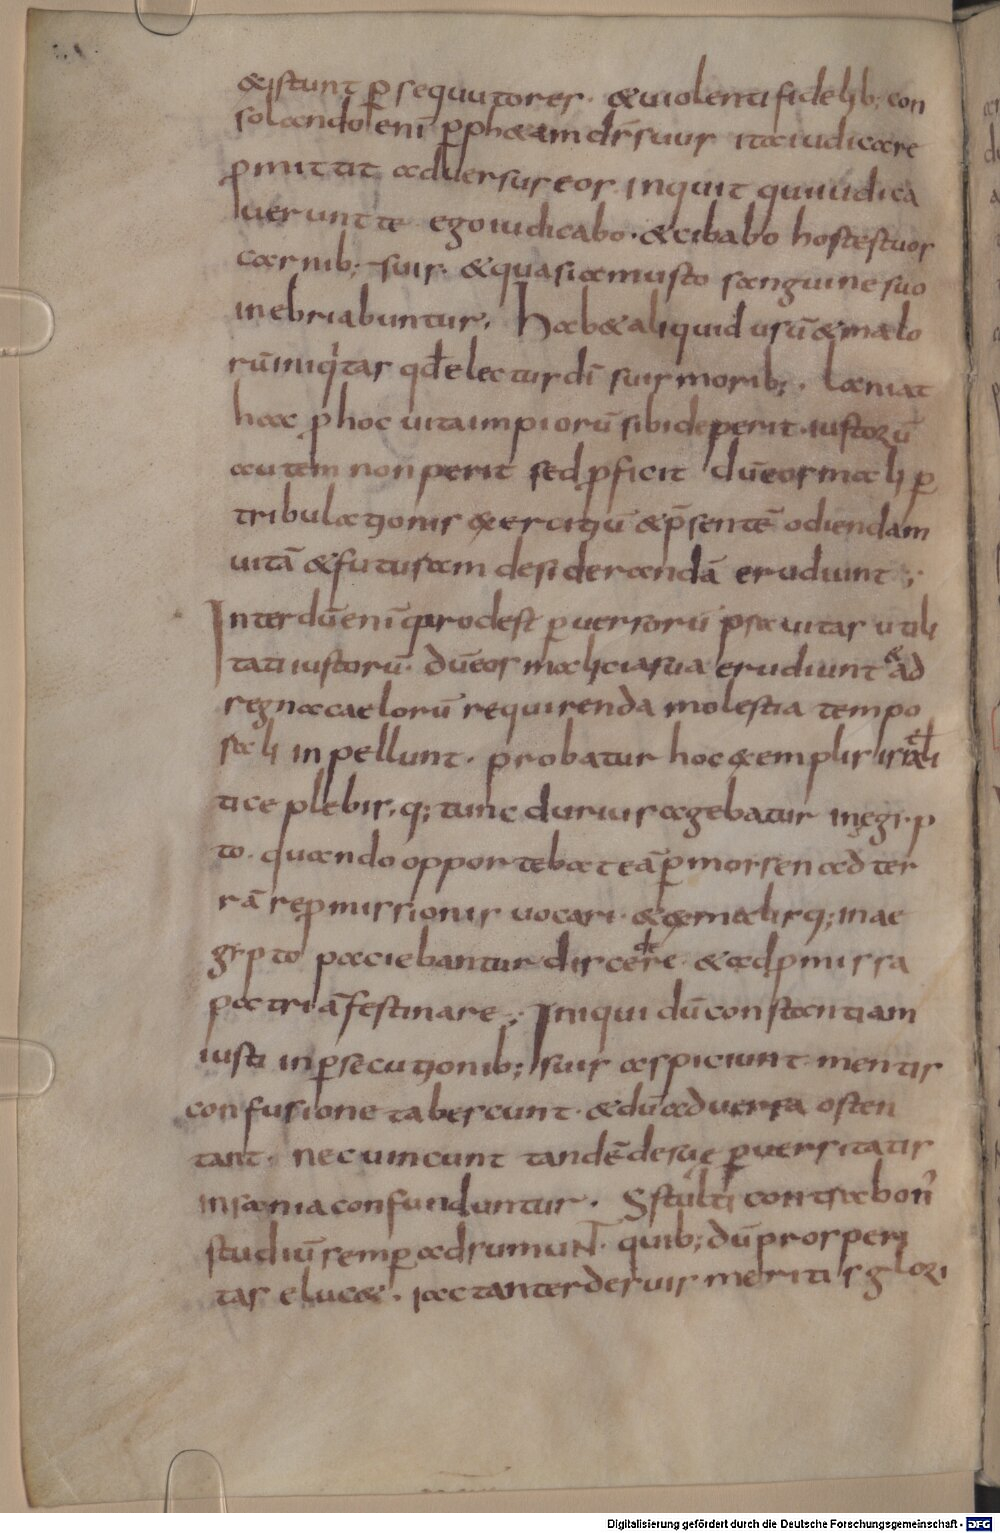 &istunt p̱sequutores. &uiolenti fidelib; con
solando eni͞ p̱ph&am d͞ssuus ita iudicare
p̱mittit aduersus eos inquit qui iudica
uerunt te ego iudicabo. &cibabo hostes tuos
carnib; suis. &quasi a musto sanguine suo
inebriabuntur. hab& aliquid usu͞ & malo
ru͞ iniq'tas qđ electus di͞ suis morib;. lania&
haec p̱ hoc uita impioru͞ sibi deperit. iustoru͞
autem non perit sed p̱ficit du͞ eos mali p̱
tribulationis exercitiu͞ &p͞sente͞ odiendam
uita͞ &futuram desideranda͞ erudiunt;
Interdu͞ eni͞ prodest p̱uersoru͞ prauitas utili
tati iustoru͞. du͞ eos malicia sua erudiunt & ad
regna caeloru͞ requirenda molestia tempo
rali inpellunt. probatur hoc exemplis israheli
tice plebis, q; tunc durius agebatur in egip
to. quando opportebat ea͞ p̱ morsen ad ter
ra͞ rep̱missionis uocari. & ex malis q; in ae
gipto patiebantur discedere &ad p̱missa
patria͞ festinare; Iniqui du͞ constantiam
iusti in p̱secutionib; suis aspiciunt mentis
confusione tabescunt. &du͞ aduersa osten
tant. nec uincunt tande͞ de sue p̱uersitatis
insania confunduntur. S Stulti contra bon'
studiu͞ semp̱ adsumuNT. quib; du͞ prosperi
tas eluc&. iactanter de suis meritis glori
Digitalisierung gefördert durch die Deutsche Forschungsgemeinschaft - DFG